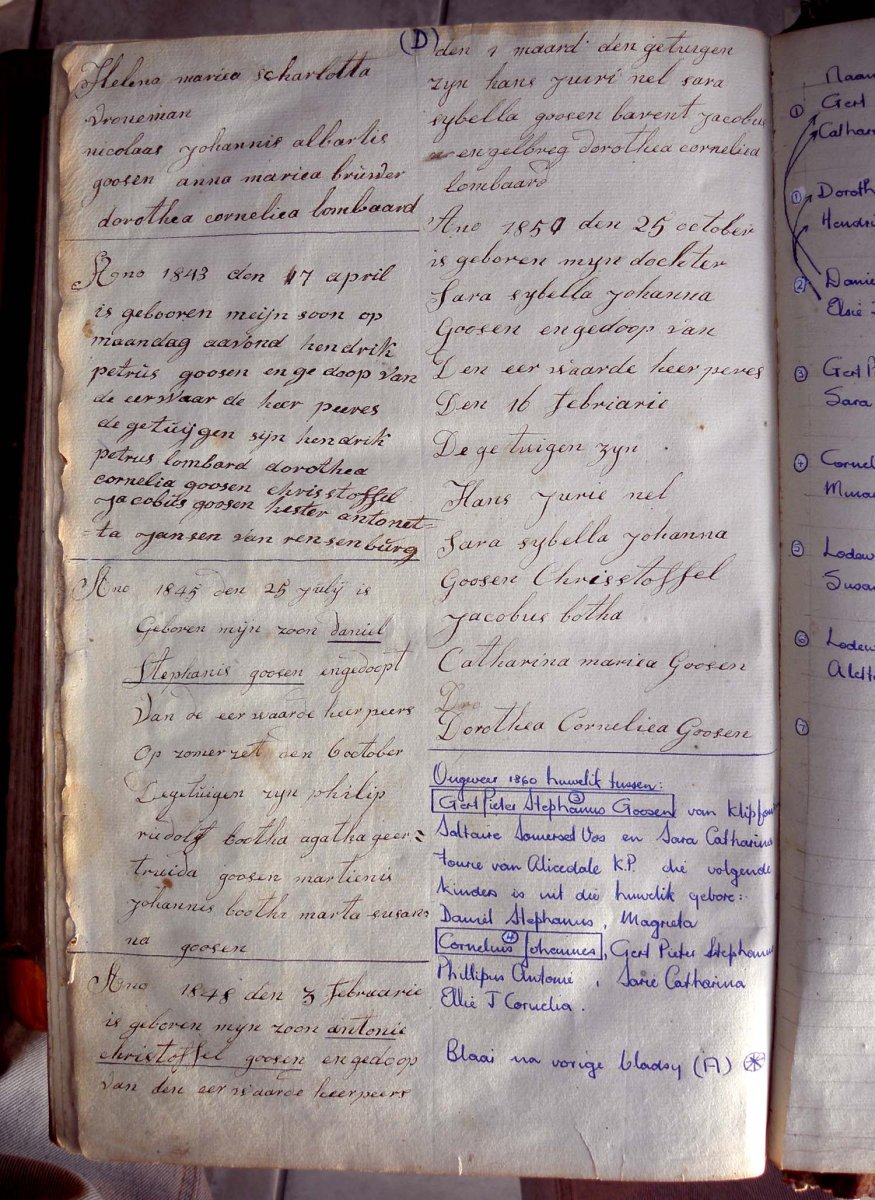 (D)
Helena mariea scharlotta
vroneman
nicolaas johannis albartis
goosen anna mariea bruwer
dorothea corneliea lombaard
Ano 1843 den 17 april
is gebooren meijn soon op
maandag aavond hendrik
petrus goosen en gedoop van
de eerwaar de heer peeres
de getuijgen sijn hendrik
petrus lombard dorothea
cornelia goosen chrisstoffel
jacobus goosen hester antonet=
=ta jansen van rensenburg
Ano 1845 den 25 julij is
Geboren mijn zoon daniel
Stephanis goosen engedoopt
Van de eer waarde heer peers
Op zomerzet den 6 october
Degetuigen zyn philip
rudolf bootha agatha geer=
truida goosen martienis
johannis bootha marta susan=
na goosen
Ano 1848 den 3 februarie
is geboren myn zoon antonie
christoffel goosen en gedoop
van den eer waarde heer peers
den 1 maard den getuigen
zyn hans juiri nel sara
sybella goosen barent jacobus
engelbreg dorothea corneliea
lombaard
Ano 1850 den 25 october
is geboren myn dochter
Sara sybella johanna
Goosen en gedoop van
Den eer waarde heer peres
Den 16 febriarie
De ge tuigen zyn
Hans jurie nel
Sara sybella johanna
Goosen Chrisstoffel
jacobus botha
Catharina mariea Goosen
Dro
Dorothea Corneliea Goosen
Ongeveer 1860 huwelik tussen:
Gert Pieter Stephanus Goosen (3) van
Saltaire Somerset Oos en Sara Catharina
Fourie van Alicedale K.P. die volgende
kinders is uit die huwelik gebore:
Daniel Stephanus, Magrieta
Cornelius Johannes (4), Gert Pieter Stephanus
Phillipus Antonie, Sarie Catharina
Ellie J Cornelia.
Blaai na vorige bladsy (A)
(1) Gert
(1)
(2)
(3) Gert P
Sara
(4)
(5)
(6)
(7)